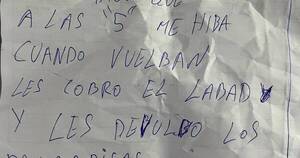 QUE
A LAS "5" ME HIBA
CUANDO VUELBAN
LES COBRO EL LABAD
Y LES DEVULBO LOS